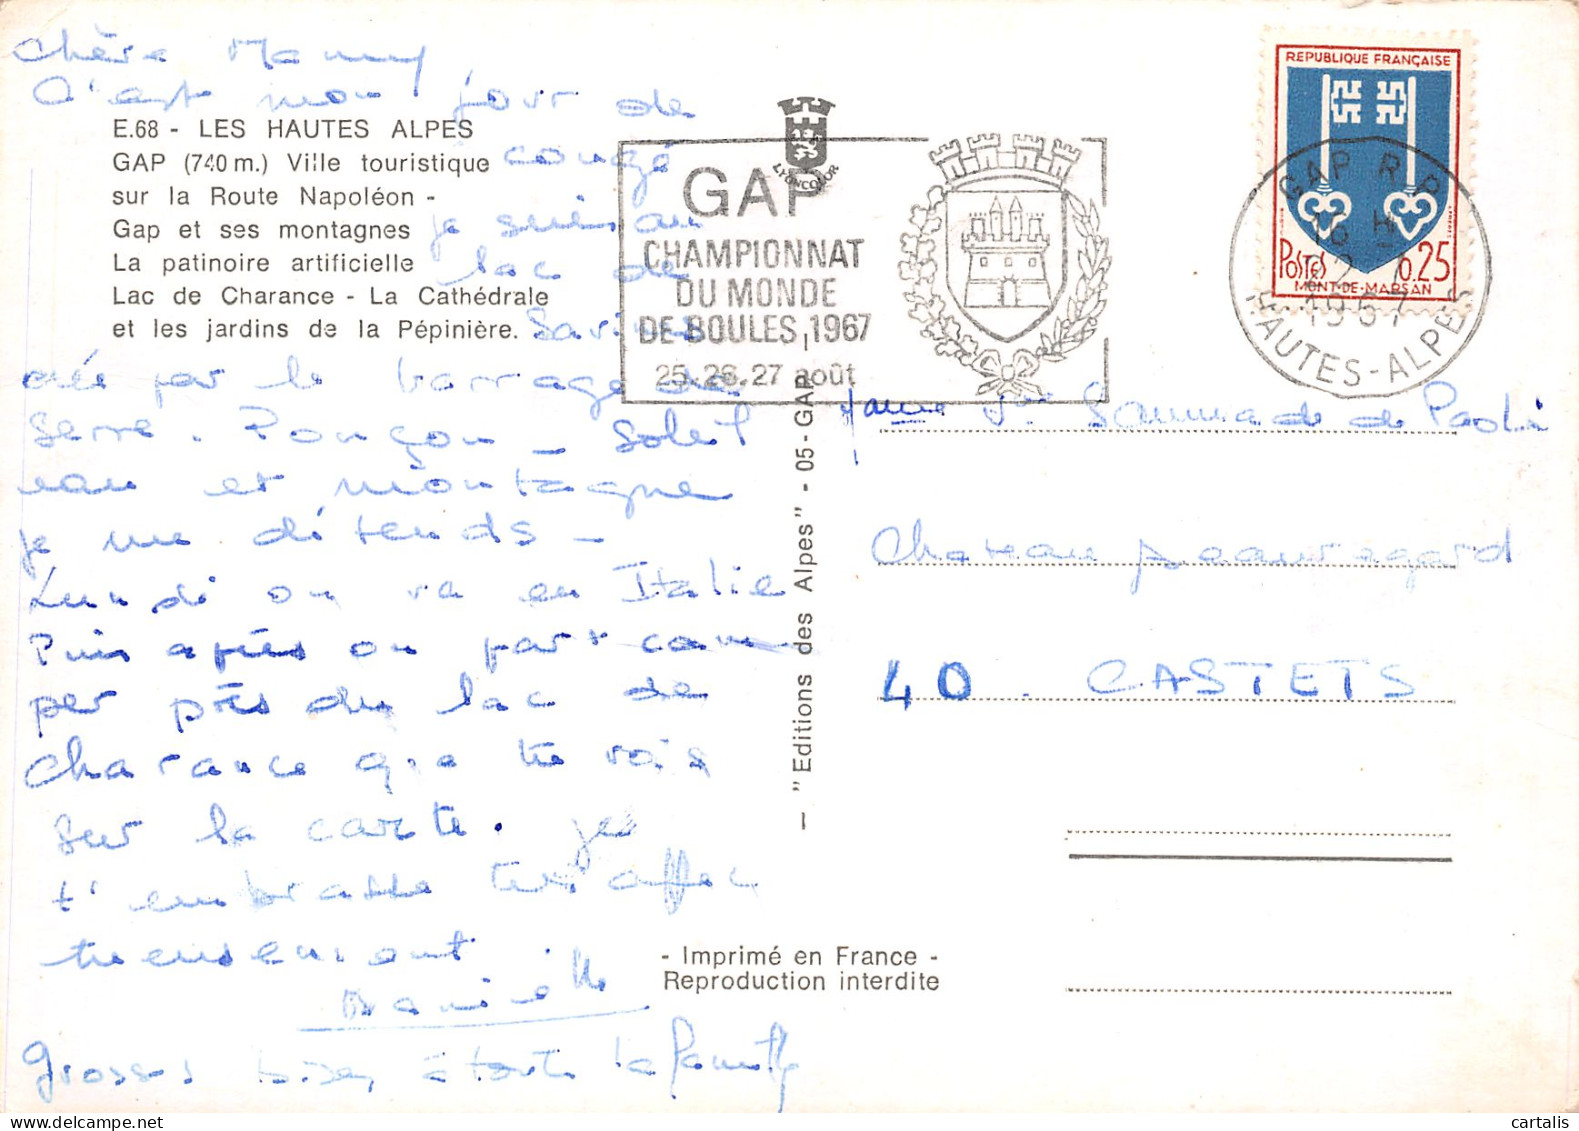 Chère Mamy
C'est mon jour de
congé
je suis au
lac de
Savines
créé par le barrage de
Serre-Ponçon - Soleil
eau et montagne
je me détends -
Lundi on va en Italie
Puis après on part cam
per près du lac de
Charance que tu vois
sur la carte. je
t'embrasse très affec
tueusement
Danielle
Grosses bises à toute la famille
E.68 - LES HAUTES ALPES
GAP (740 m.) Ville touristique
sur la Route Napoléon -
Gap et ses montagnes
La patinoire artificielle
Lac de Charance - La Cathédrale
et les jardins de la Pépinière.
LYONCOLOR
GAP
CHAMPIONNAT
DU MONDE
DE BOULES, 1967
25.26.27 août
REPUBLIQUE FRANÇAISE
POSTES 0,25
MONT-DE-MARSAN
GAP R.P.
16 H
1967
HAUTES-ALPES
de Paoli
Chateau Beauregard
40 . CASTETS
— "Editions des Alpes" - 05 - GAP
- Imprimé en France -
Reproduction interdite
cartalis